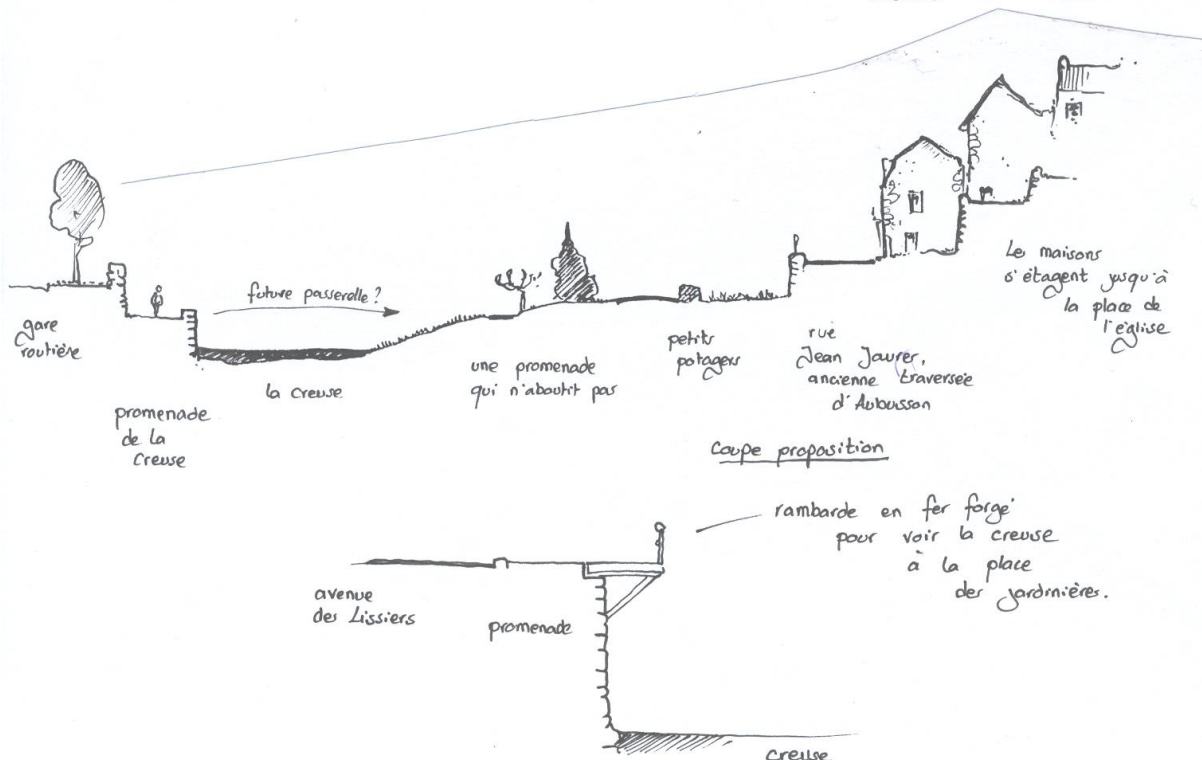 future passerelle ?
gare
routière
promenade
de la
Creuse
la Creuse
une promenade
qui n'aboutit pas
petits
potagers
rue
Jean Jaures,
ancienne traversée
d'Aubusson
Le maisons
s'étagent jusqu'à
la place de
l'église
Coupe proposition
rambarde en fer forgé
pour voir la Creuse
à la place
des jardinières.
avenue
des Lissiers
promenade
Creuse